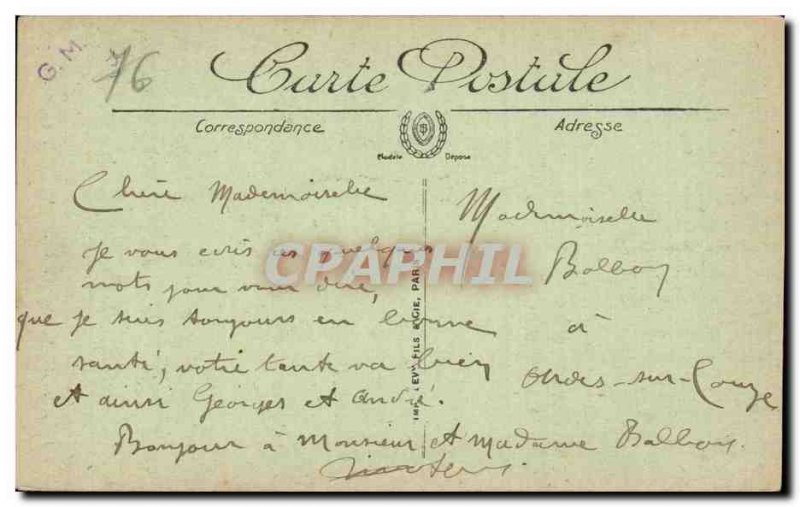 G.M.
76
Carte Postale
Correspondance
Adresse
Modèle Déposé
Chère Mademoiselle
Je vous ecris ces quelques
mots pour vous dire,
que je suis toujours en bonne
santé, votre tante va bien
et ainsi Georges et André.
Bonjour à Monsieur et Madame Balbon.
Mademoiselle
Balbon
à
sur-Couze
IMP. LEVY FILS & CIE, PARIS
CPAPHIL